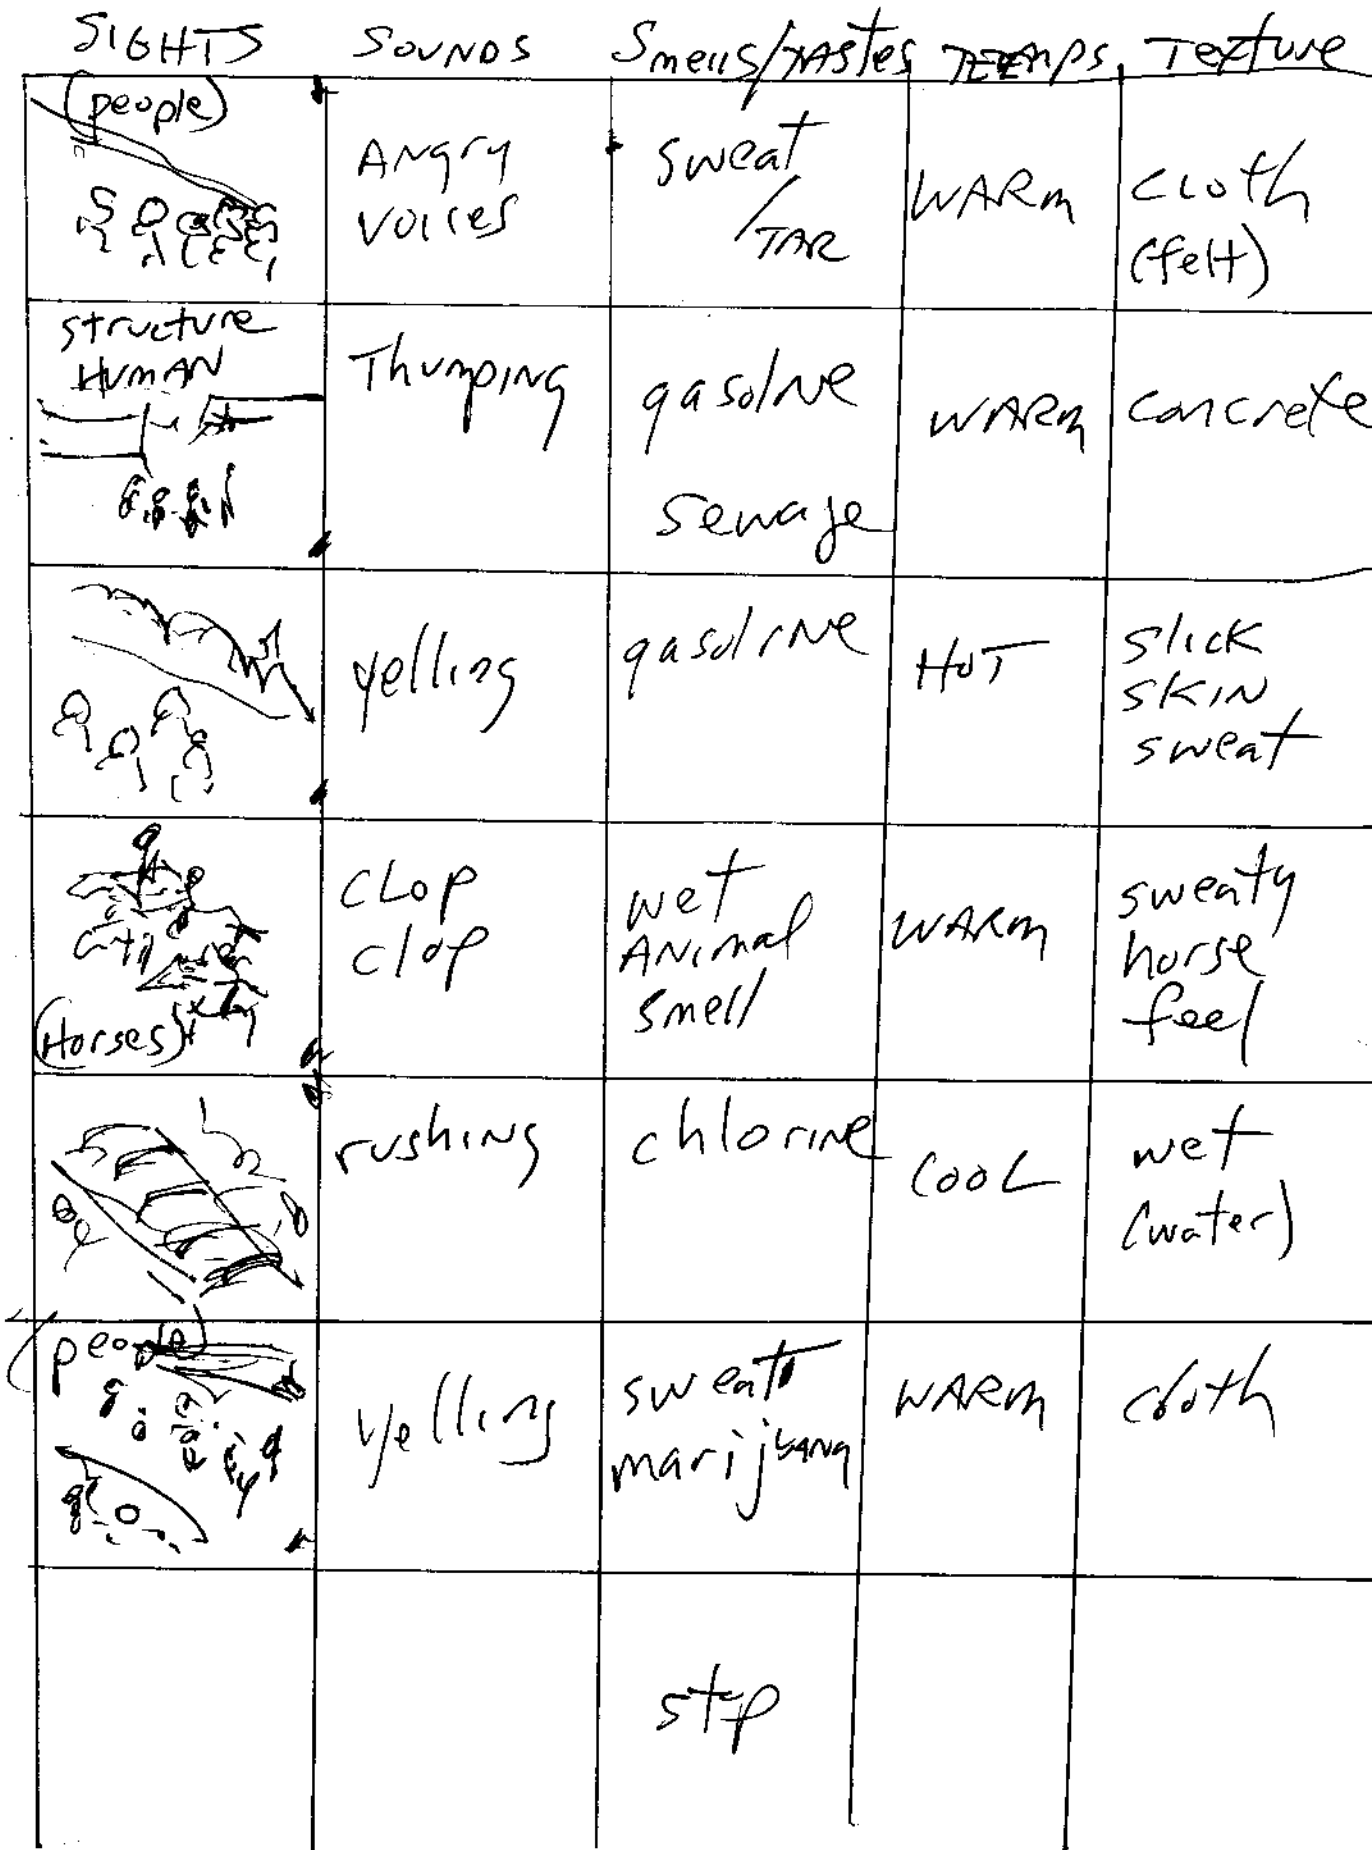 SIGHTS SOUNDS Smells/TASTes TEMPS Texture
(people)
ANgry
voices
sweat
/TAR
WARM
CLoth
(felt)
structure
HUMAN
ThumpING
gasolNe
sewage
WARM
concrete
yelling
gasolrNe
HOT
slick
SKIN
sweat
(Horses)
CLop
clop
wet
ANimal
smell
WARM
sweaty
horse
feel
rushiNg
chlorine
COOL
wet
(water)
people
yelling
sweat
marijuana
WARM
cloth
stp